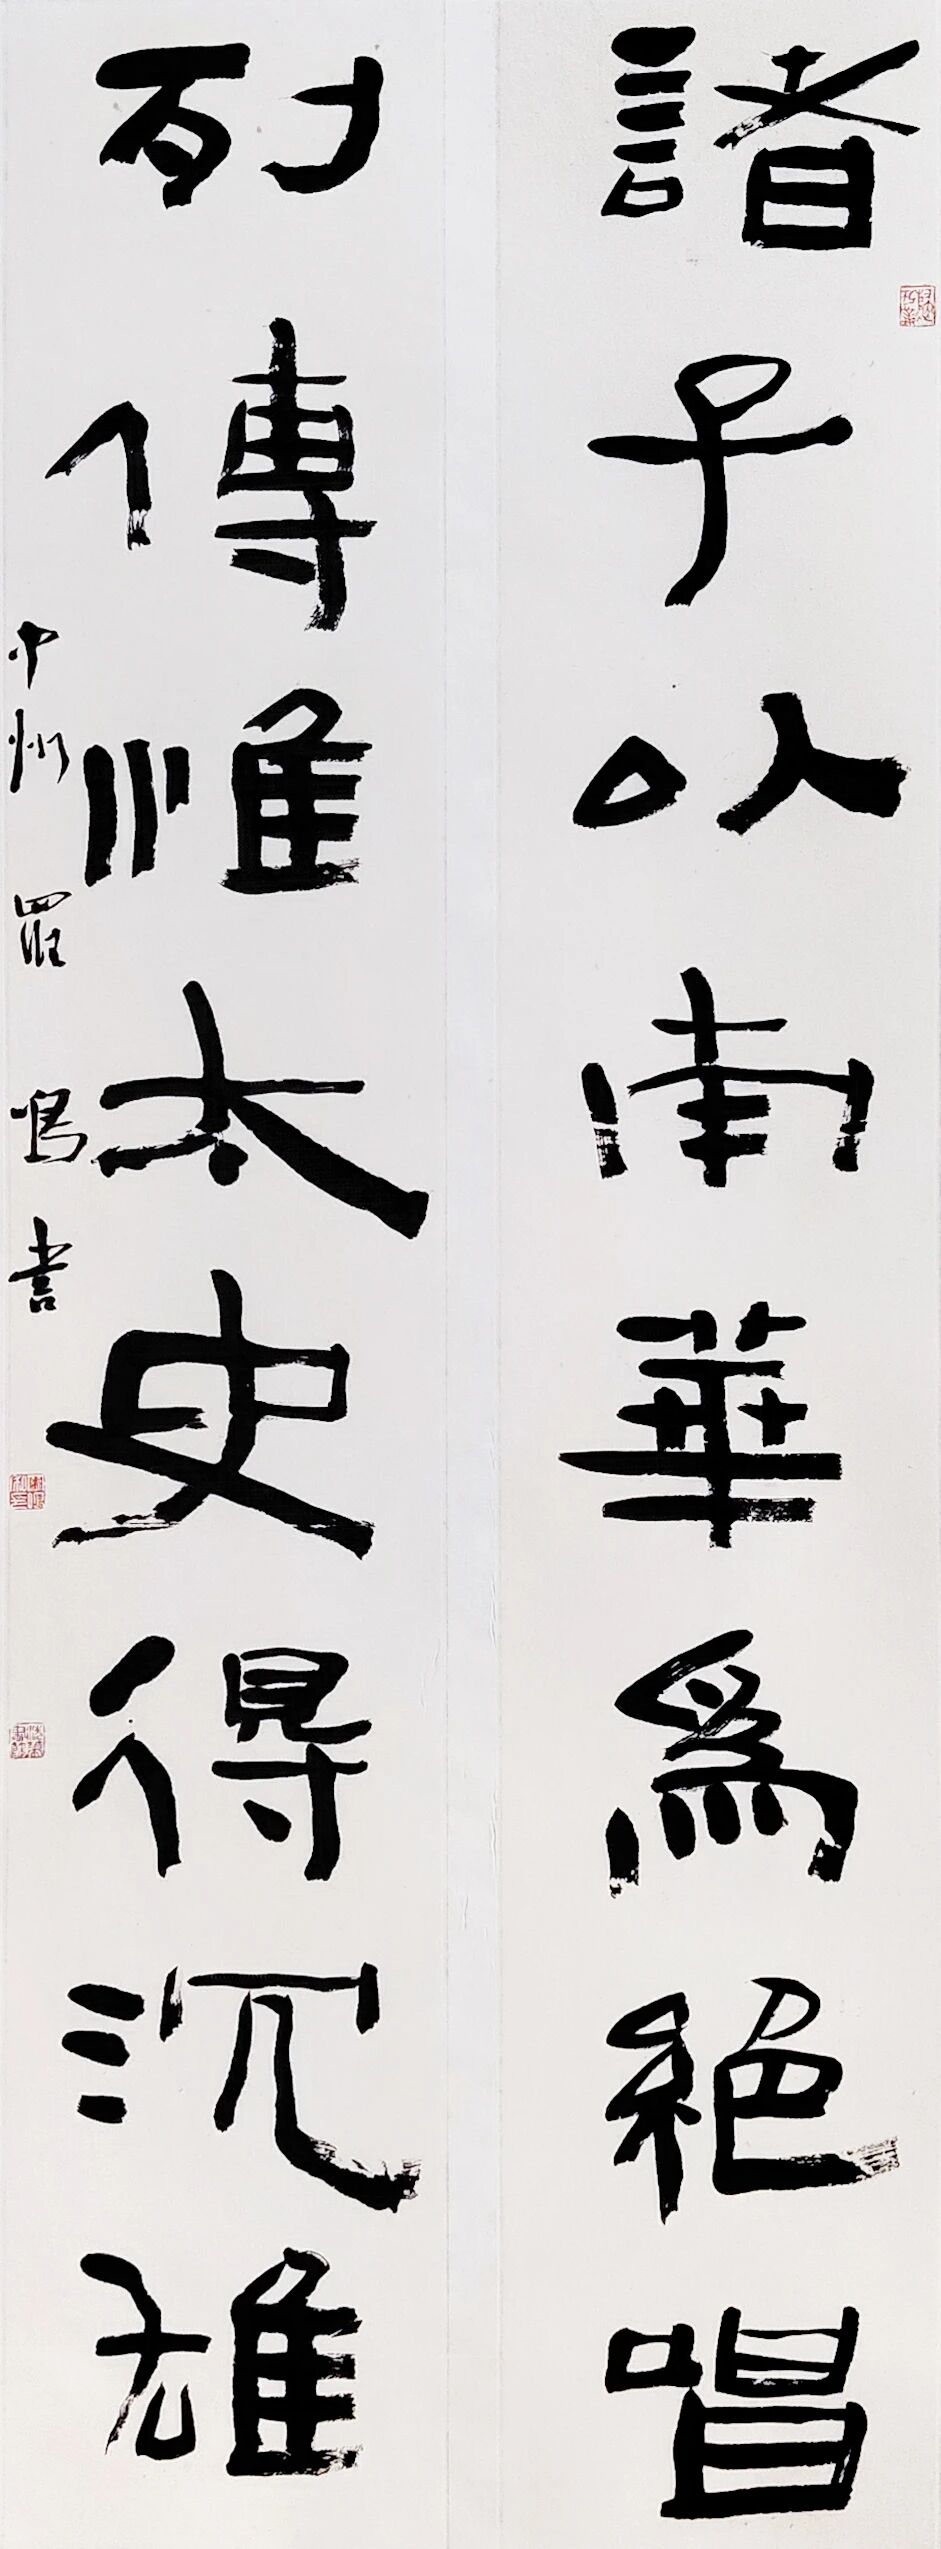 諸子以南華爲絕唱
列傳惟太史得沉雄
中州羅鳴書